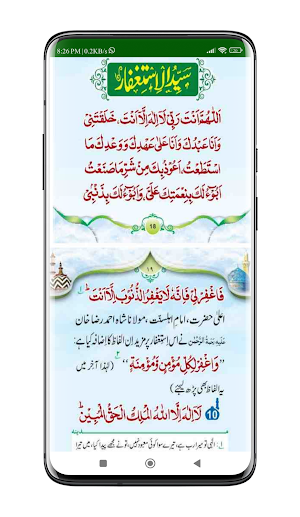 8:26 PM | 0.2KB/s
سَیِّدُ الْاِسْتِغْفَار
اَللّٰهُمَّ اَنْتَ رَبِّیْ لَاۤ اِلٰهَ اِلَّاۤ اَنْتَ، خَلَقْتَنِیْ
وَاَنَا عَبْدُكَ وَاَنَا عَلٰی عَهْدِكَ وَوَعْدِكَ مَا
اسْتَطَعْتُ، اَعُوْذُبِكَ مِنْ شَرِّ مَا صَنَعْتُ
اَبُوْٓءُ لَكَ بِنِعْمَتِكَ عَلَیَّ، وَاَبُوْٓءُ لَكَ بِذَنْبِیْ
18
۱۹
فَاغْفِرْ لِیْ فَاِنَّهٗ لَا یَغْفِرُ الذُّنُوْبَ اِلَّاۤ اَنْتَ ؕ
اعلیٰ حضرت، امامِ اہلسنت، مولانا شاہ احمد رضا خان
عَلَیْہِ رَحْمَۃُ الرَّحْمٰن نے اس اِستغفار پر مزید اِن الفاظ کا اضافہ کیا ہے:
”وَاغْفِرْ لِكُلِّ مُؤْمِنٍ وَّمُؤْمِنَةٍ“ (لہٰذا آخر میں
یہ الفاظ بھی پڑھ لیجئے)
10 لَاۤ اِلٰهَ اِلَّا اللّٰهُ الْمَلِكُ الْحَقُّ الْمُبِیْنُ ؕ
۱؎ الٰہی تو میرا رب ہے، تیرے سوا کوئی معبود نہیں، تو نے مجھے پیدا کیا، میں تیرا